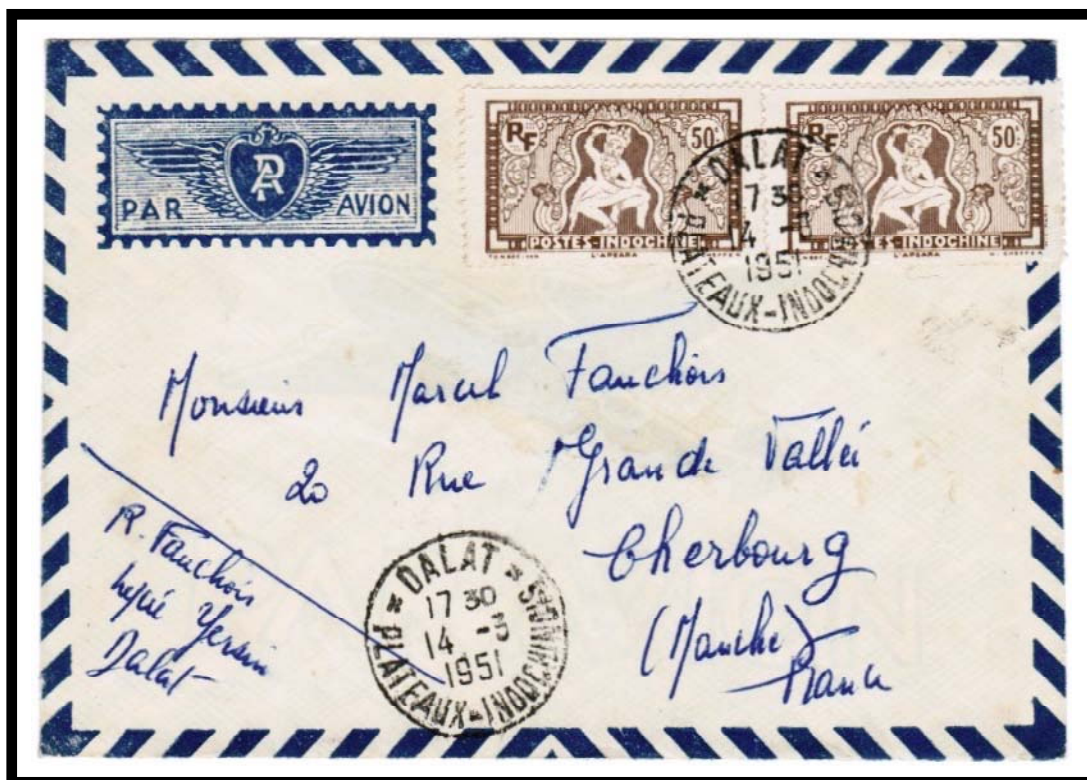 PA
PAR AVION
RF 50c
POSTES-INDOCHINE
L'APSARA
RF 50c
POSTES-INDOCHINE
L'APSARA
* DALAT *
17 30
14 -3
1951
PLATEAUX-INDOCHINOIS
Monsieur Marcel Fauchois
20 Rue Grande Vallée
Cherbourg
(Manche)
France
R. Fauchois
Lycée Yersin
Dalat
* DALAT *
17 30
14 -3
1951
PLATEAUX-INDOCHINOIS